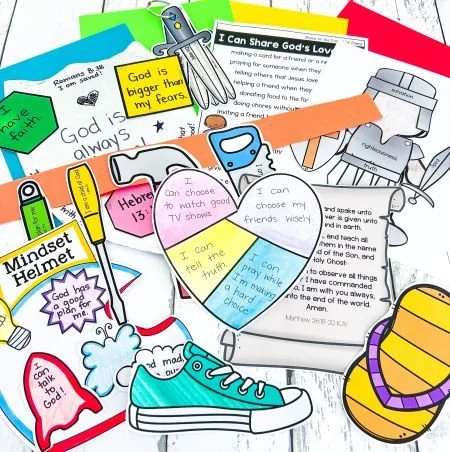 I Can Share God's Love
making a card for a friend or a
praying for someone when they
telling others that Jesus love
helping a friend when they
donating food to the
doing chores without
inviting a friend
Romans 8:18
I am saved!
I
have
faith.
God is
always
with
God is
bigger than
my fears.
Hebrews
13:
salvation
righteousness
truth
I
can choose
to watch good
TV shows.
I can
choose my
friends wisely.
I can
tell the
truth.
I can
pray while
I'm making
a hard
choice.
and spake unto
wer is given unto
nd in earth.
and teach all
them in the name
d of the Son, and
Holy Ghost:
to observe all things
I have commanded
I am with you always,
unto the end of the world.
Amen.
Matthew 28:18-20 KJV
Mindset
Helmet
God has
a good
plan for
me.
I can
talk to
God!
God made